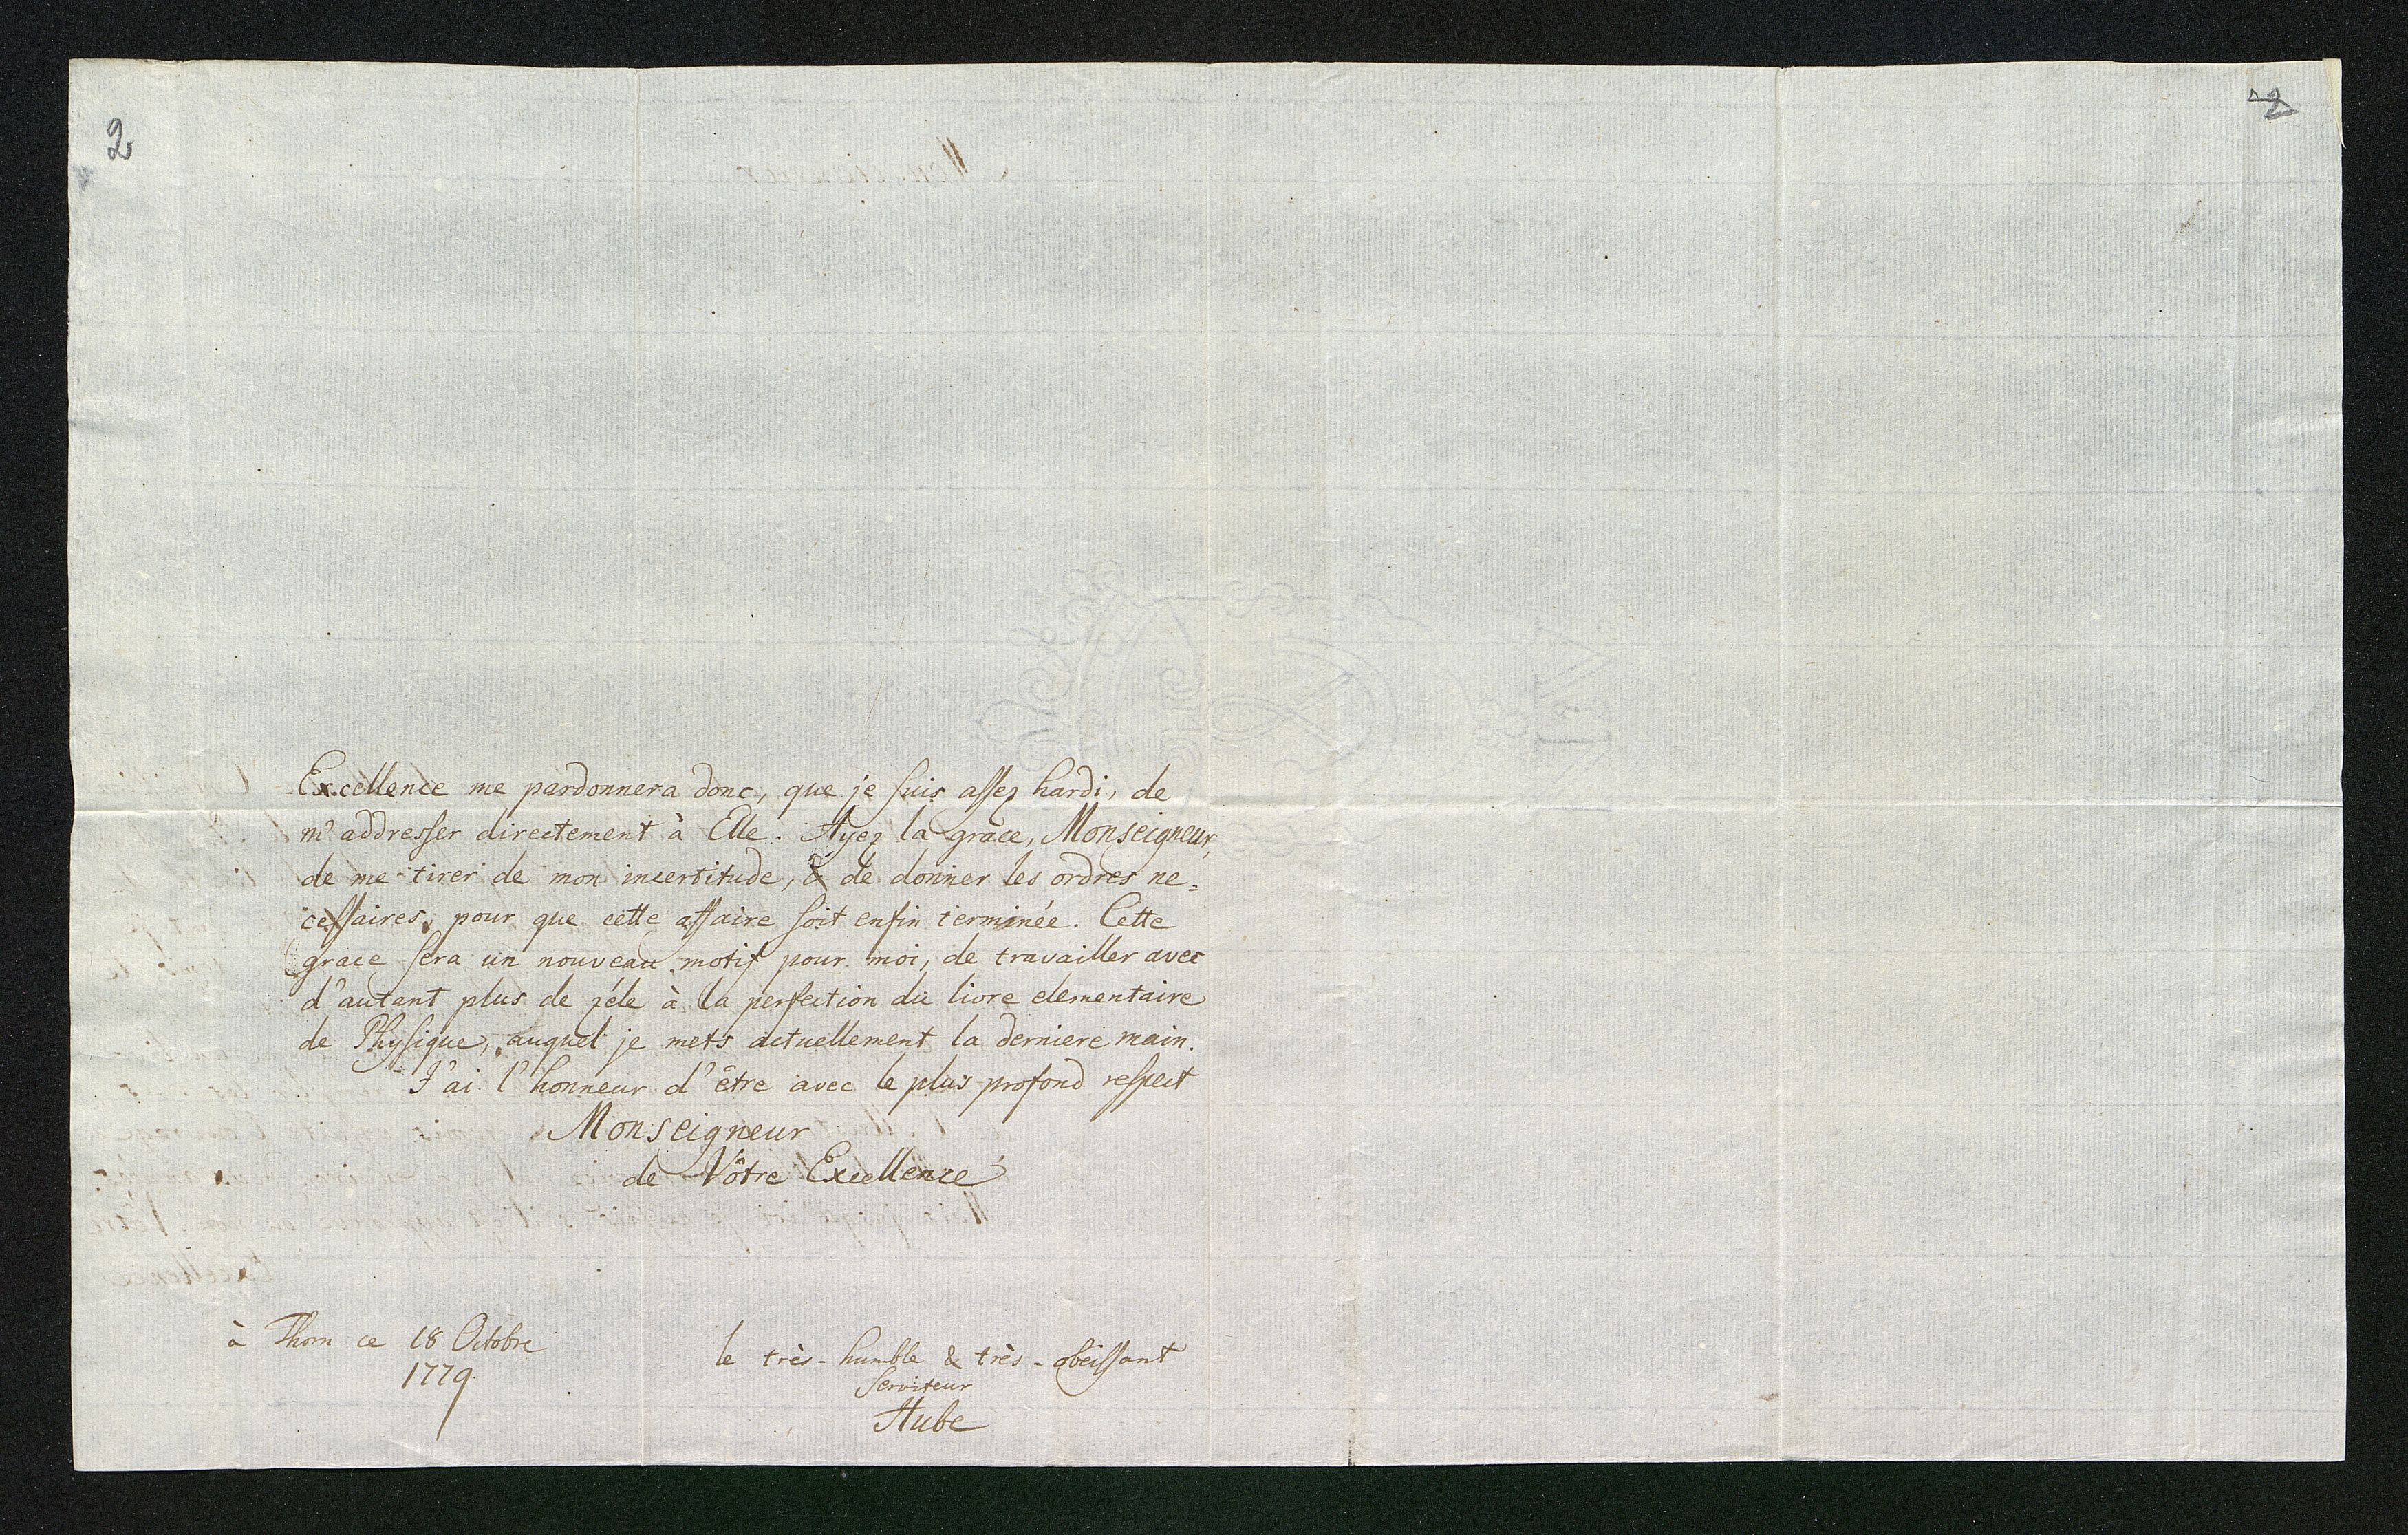 2
2
Excellence me pardonnera donc, que je suis assez hardi, de
m'addresser directement à Elle. Ayez la grace, Monseigneur,
de me tirer de mon incertitude, & de donner les ordres ne=
cessaires, pour que cette affaire soit enfin terminée. Cette
grace sera un nouveau motif pour moi, de travailler avec
d'autant plus de zéle à la perfection du livre elementaire
de Physique, auquel je mets actuellement la derniere main.
J'ai l'honneur d'être avec le plus profond respect
Monseigneur
de Vôtre Excellence
à Thorn ce 18 Octobre
1779.
le très-humble & très-obéissant
Serviteur
Hube